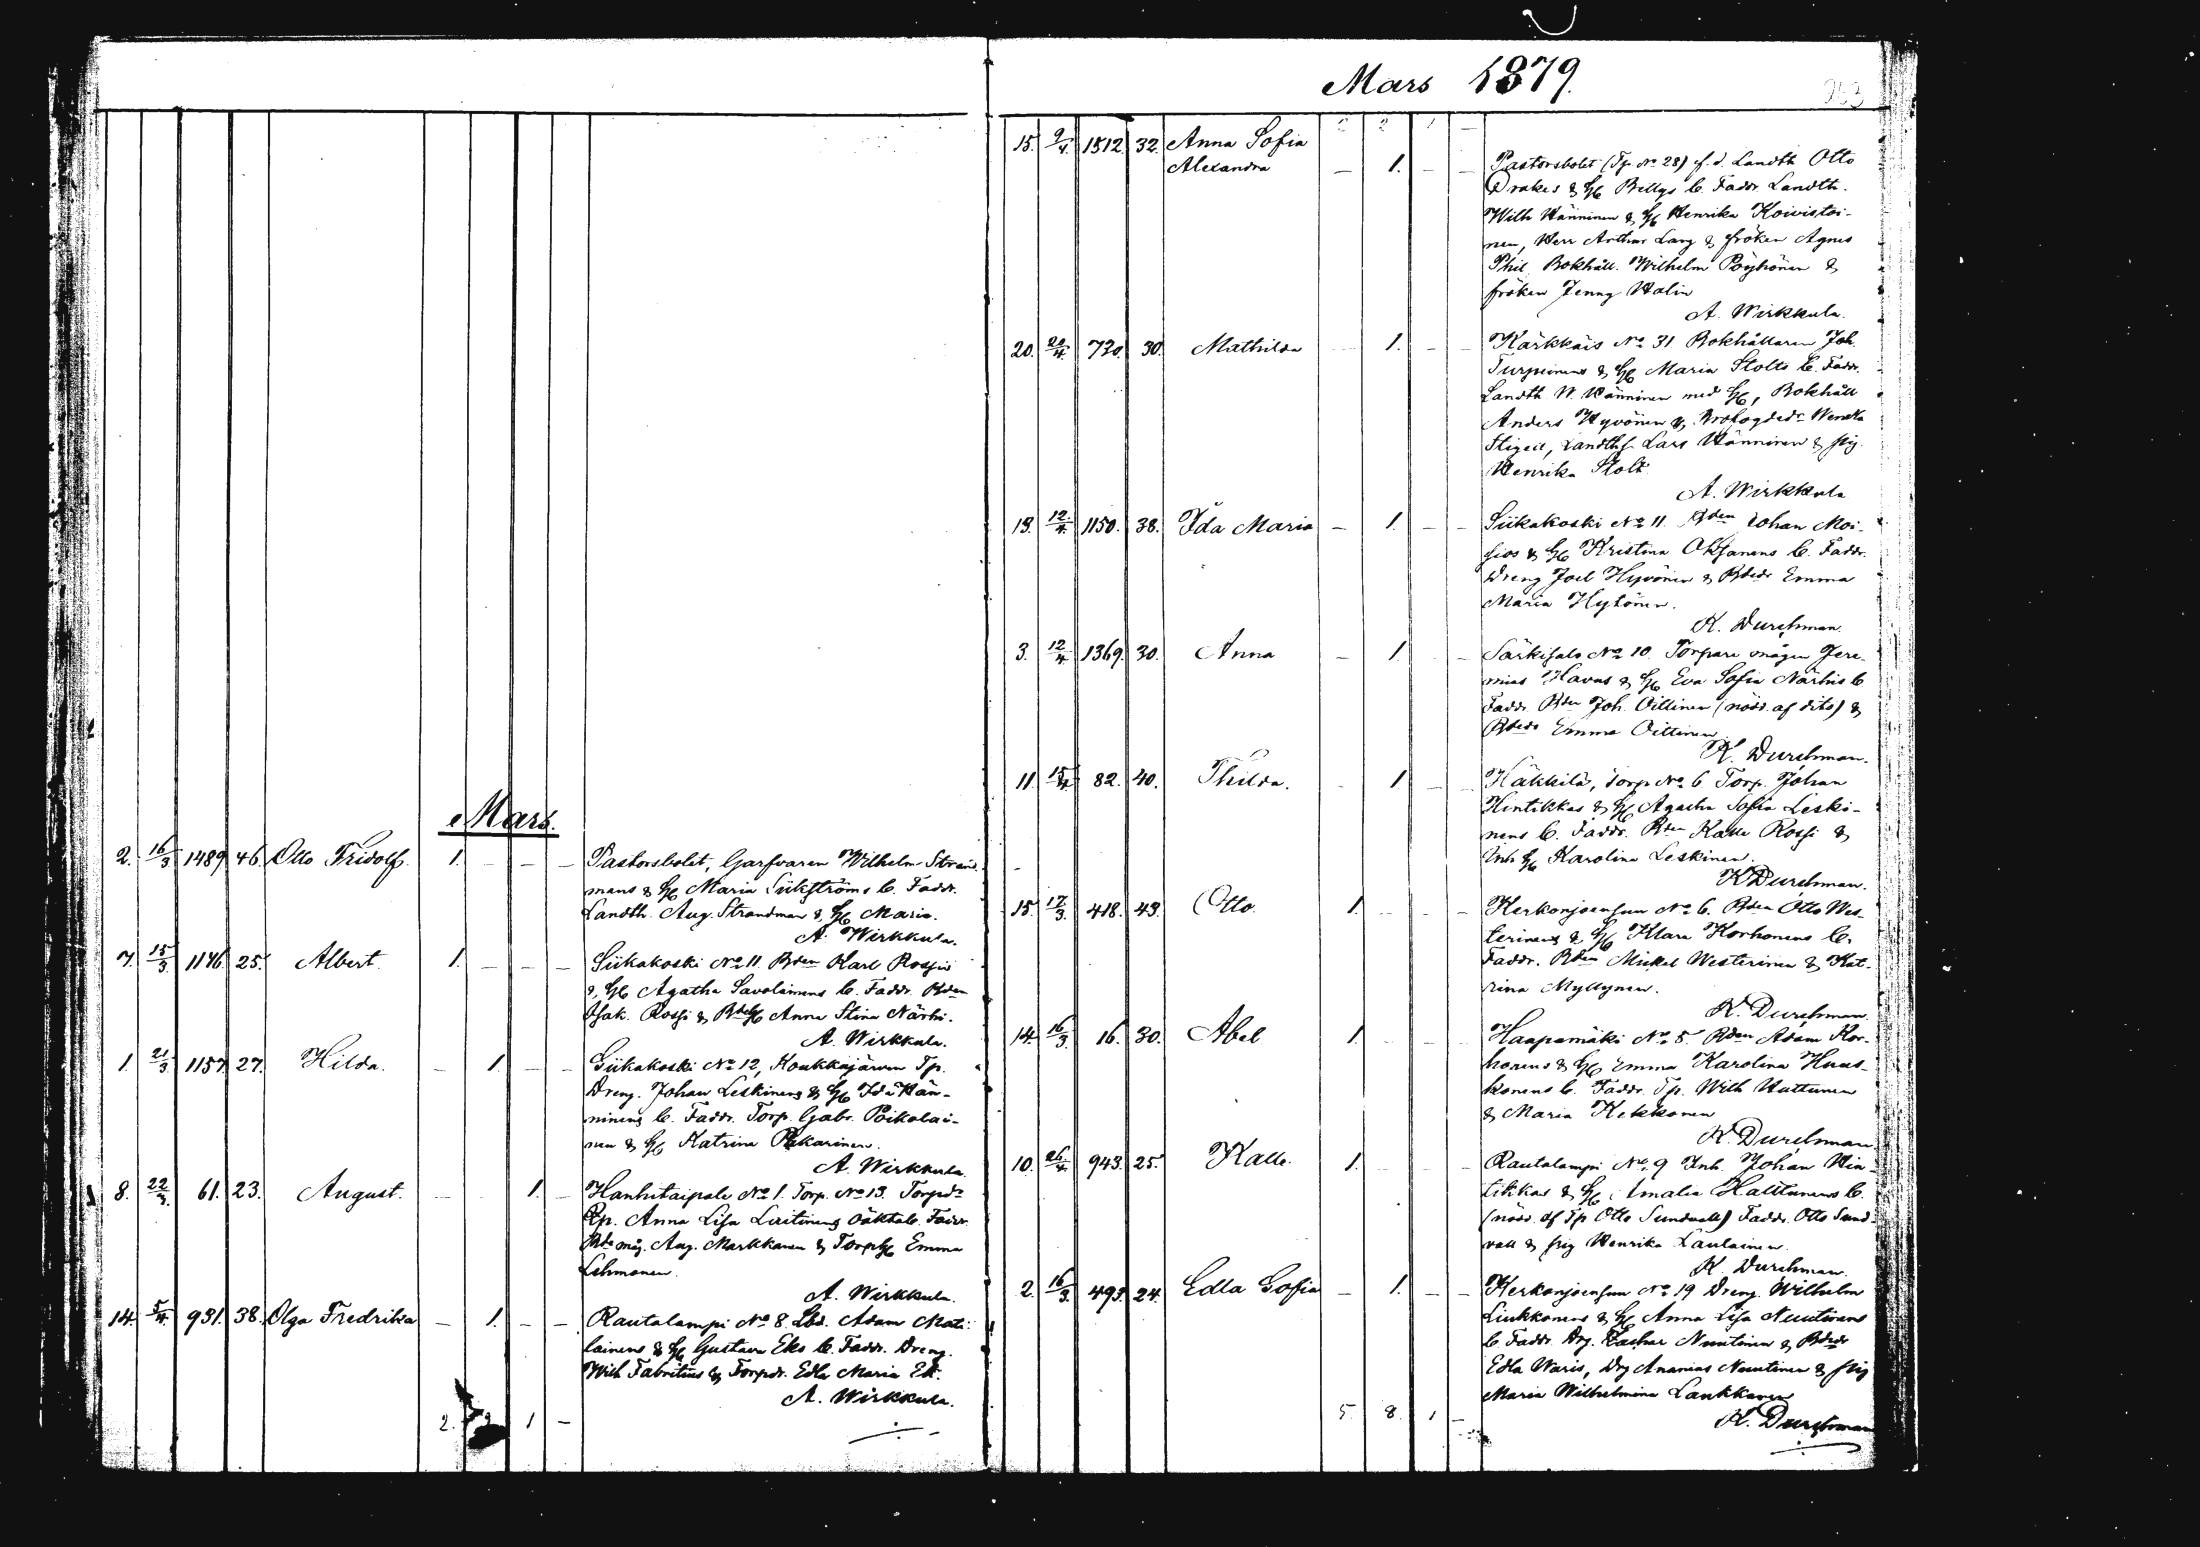 Mars.
2. 16/3 1489 46. Otto Fridolf. 1. – – – Pastorsbolet, Garfvaren Wilhelm Strand-
mans & H Maria Siikströms b. Faddr.
Landth. Aug. Strandman & H Maria.
A. Wirkkula.
7. 15/3 1176 25. Albert 1. – – – Siikakoski No 11 Bden Karl Rossis
& H Agatha Savolainens b. Faddr. Bden
Isak Rossi & Anna Stina Närhi.
A. Wirkkula.
1. 21/3 1157 27. Hilda. – 1. – – Siikakoski No 12, Koukkajärven Tp.
Dreng. Johan Leskinens & H Ida Hän-
ninens b. Faddr. Torp. Gabr. Poikolai-
nen & H Katrina Pekarinen.
A. Wirkkula.
8. 22/3 61. 23. August. – – 1. – Hanhitaipale No 1. Torp. No 13. Torpdr
Anna Lisa Liitinens oäkta b. Faddr.
Aug. Markkanen & Torp H Emma
Lehmonen.
A. Wirkkula.
14. 5/4 931. 38. Olga Fredrika – 1. – – Rautalampi No 8. Adam Mati-
lainens & H Gustava Eks b. Faddr. Dreng.
Wilh Fabritius & Torpdr. Edla Maria Ek.
A. Wirkkula.
2. 2 1 –
Mars 1879.
2 2 1 –
15. 9/4 1512. 32. Anna Sofia
Alexandra – 1. – – Pastorsbolet (Tp No 28) f. d. Landth Otto
Drakes & H Bellys b. Faddr Landth.
Wilh Hänninen & H Henrika Koivistoi-
nen, Herr Arthur Lang & fröken Agnes
Phil Bokhåll. Wilhelm Pöyhönen &
fröken Jenny Walin
A. Wirkkula.
20. 20/4. 720. 30. Mathilda 1. – – Kärkkäis No 31 Bokhållaren Joh.
Turpeinens & H Maria Stolts b. Faddr.
Landth W. Hänninen med H, Bokhåll
Anders Hyvönen & Wendla
Landthf. Lars Hänninen & pig.
Henrika Stolt
A. Wirkkula
13. 12/4. 1150. 38. Ida Maria – 1. – – Siikakoski No 11 Bden Johan Moi-
sios & H Kristina Oksanens b. Faddr.
Dreng Joel Hyvönen & Bdedr Emma
Maria Hytönen.
K. Durchman.
3. 12/4 1369. 30. Anna – 1. – Särkisalo No 10. Torpare mågen Jere-
mias Havus & H Eva Sofia Närhis b
Faddr. Bden Joh. Oittinen (nödd. af dito) &
Bdedr Emma Oittinen.
K. Durchman.
11. 15/4 82. 40. Thilda. – 1 – – Häkkilä, Torp No 6 Torp. Johan
Hintikkas & H Agatha Sofia Leski-
nens b. Faddr. Bden Kalle Rossi &
Inh H Karolina Leskinen.
K Durchman.
15. 17/3. 418. 43. Otto 1. – – – Kerkonjoensuu No 6. Bden Otto Wes-
terinens & H Klara Korhonens b.
Faddr. Bden Mickel Westerinen & Kat-
rina Myllynen.
K. Durchman.
14. 16/3. 16. 30. Abel 1. – – – Haapamäki No 5 Bden Adam Kor-
honens & H Emma Karolina Huus-
konens b. Faddr. Tp. Wilh Huttunen
& Maria Kekkonen
K. Durchman
10. 26/4 943. 25. Kalle. 1. – – – Rautalampi No 9 Inh. Johan Hin-
tikkas & H Amalia Halttunens b.
(nödd. af Tp Otto Sundvall) Faddr. Otto Sund-
vall & pig Henrika Laulainen.
K. Durchman.
2. 16/3. 493. 24. Edla Sofia – 1. – – Kerkonjoensuu No 19 Dreng. Wilhelm
Liukkonens & H Anna Lisa Nuutinens
b. Faddr. Drg. Zachar Nuutinen & Bdedr
Edla Waris, Drg Ananias Nuutinen & pig
Maria Wilhelmina Laukkanen
K. Durchman
5. 8. 1 –